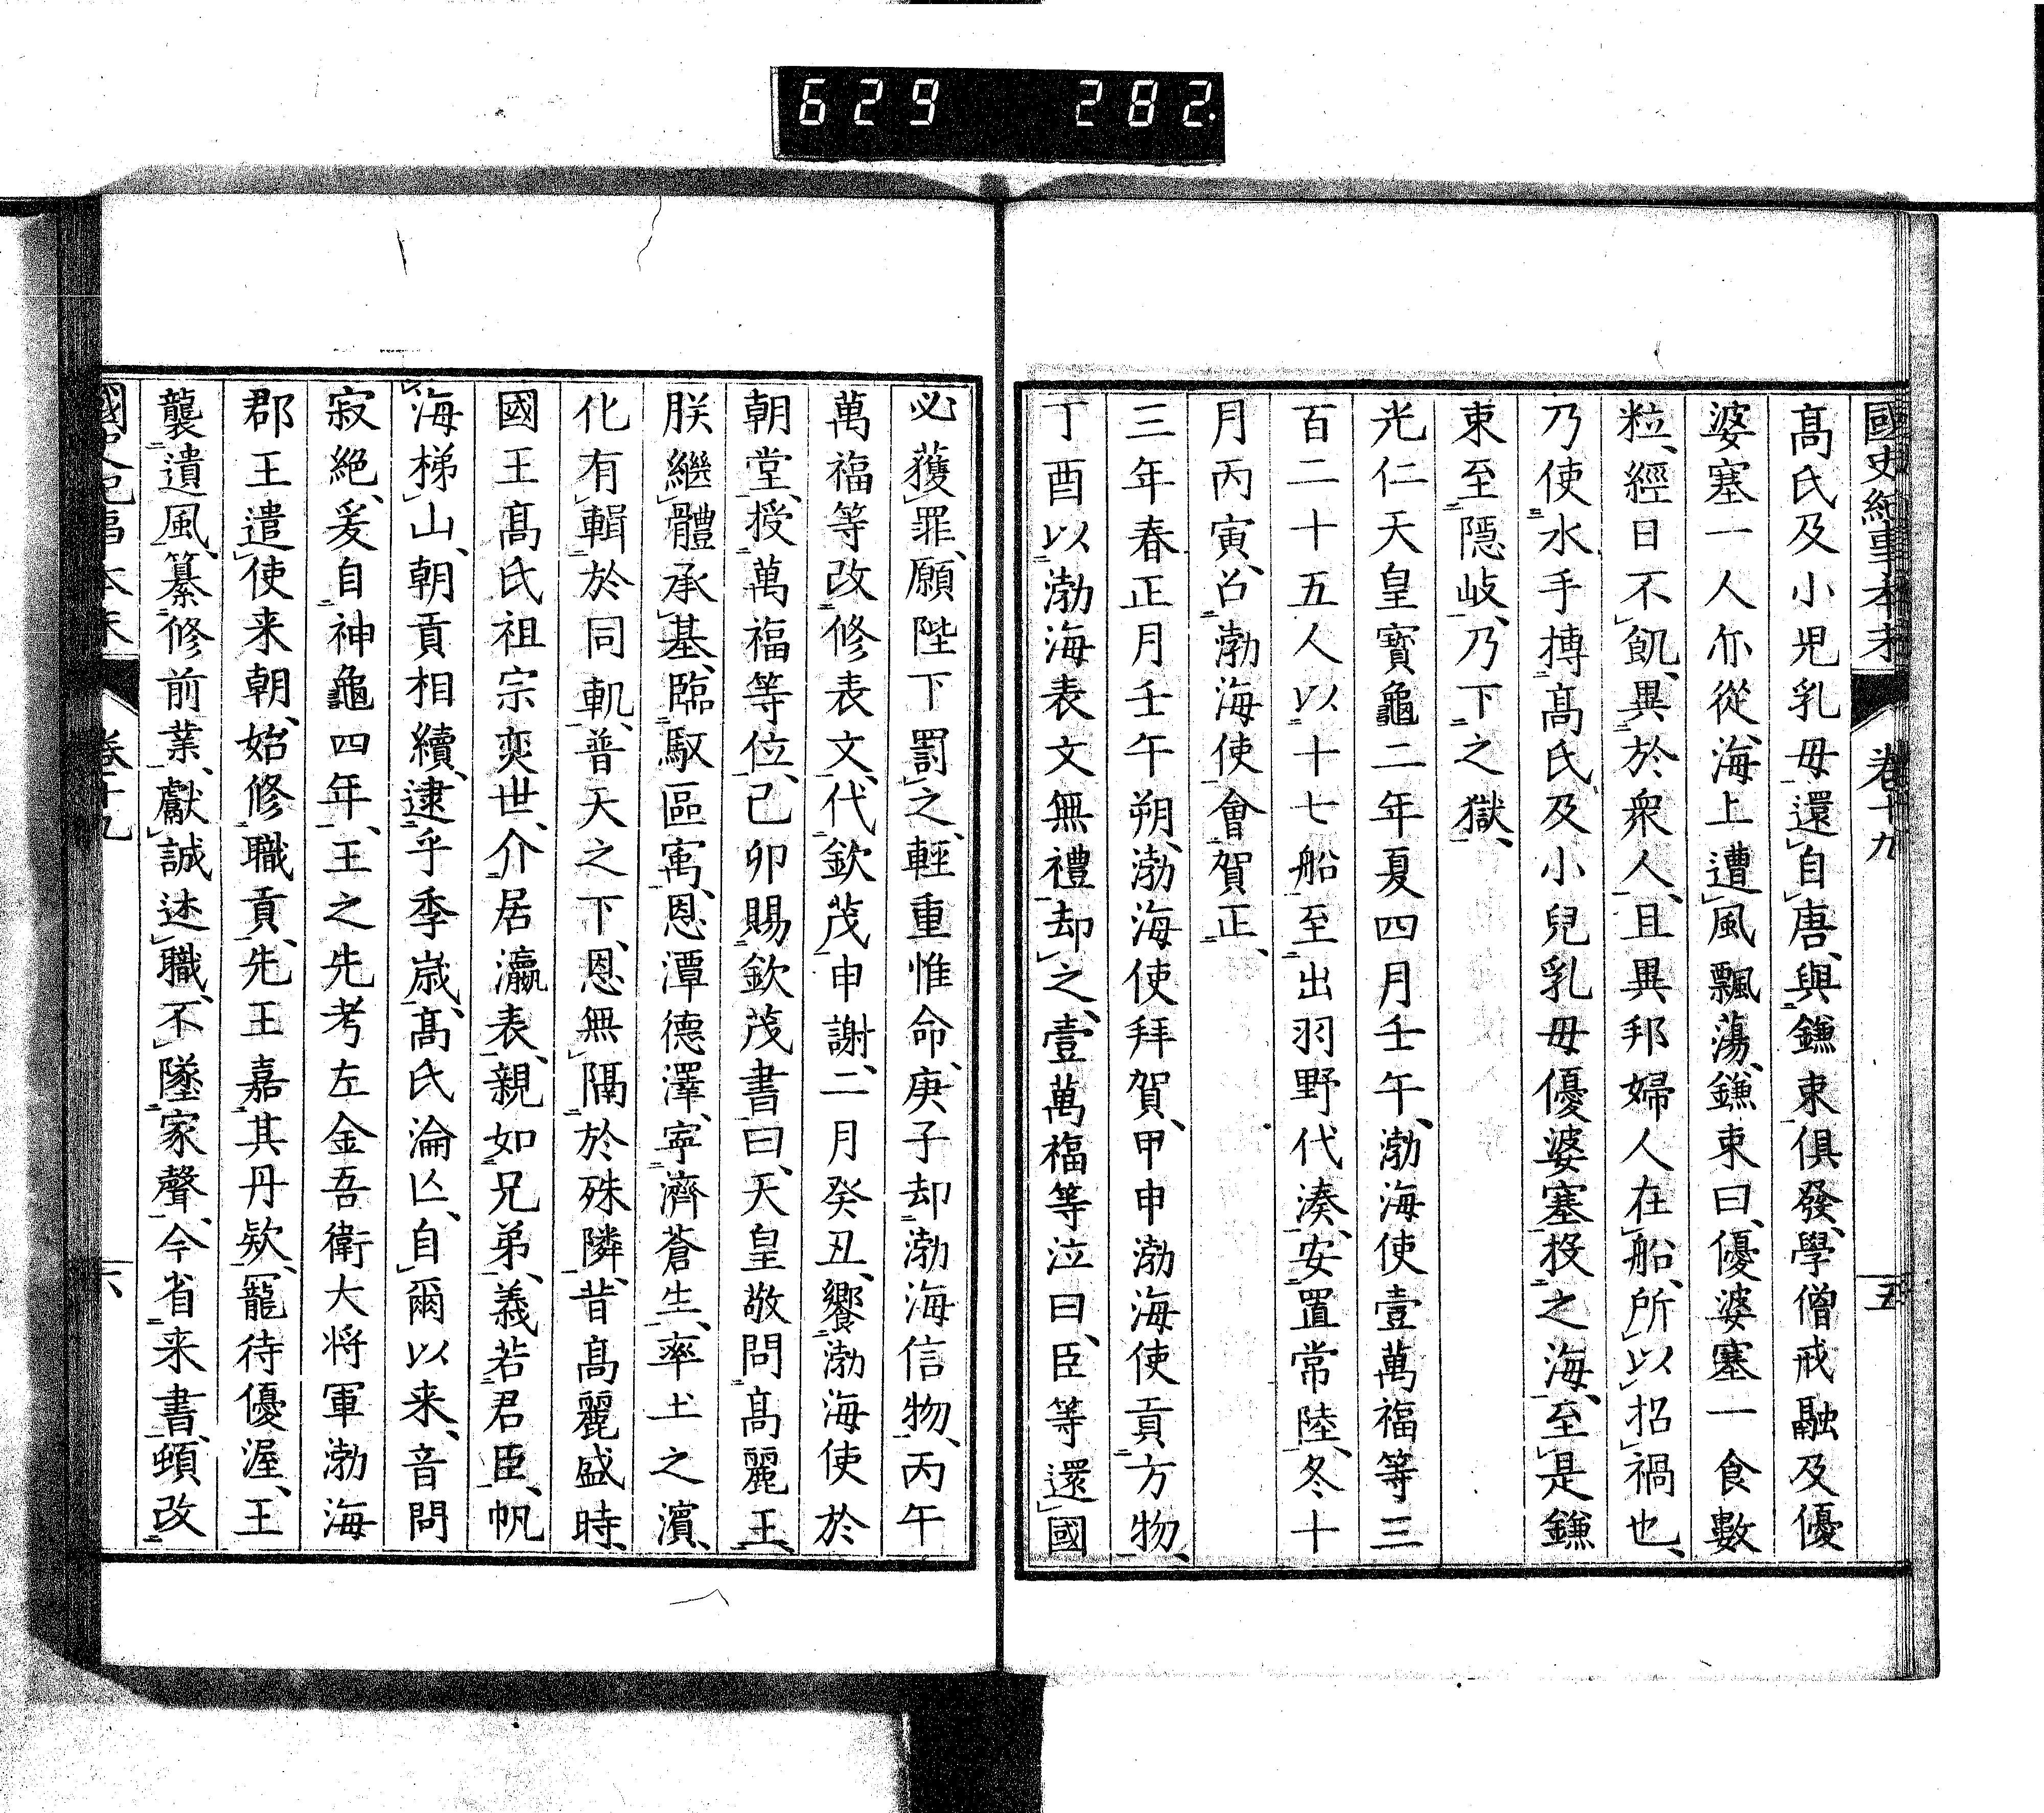 629 282.
國史紀事本末 卷十九 五
髙氏及小児乳母、還自唐、與鎌束俱發、學僧戒融及優
婆塞一人亦從、海上遭風飄蕩、鎌束曰、優婆塞一食數
粒、經日不飢、異於衆人、且異邦婦人在船、所以招禍也、
乃使水手摶髙氏及小兒乳母優婆塞投之海、至是鎌
束至隱岐、乃下之獄、
光仁天皇寳龜二年夏四月壬午、渤海使壹萬福等三
百二十五人以十七船至出羽野代湊、安置常陸、冬十
月丙寅、召渤海使會賀正、
三年春正月壬午朔、渤海使拜賀、甲申渤海使貢方物、
丁酉以渤海表文無禮却之、壹萬福等泣曰、臣等還國
必獲罪、願陛下罰之、輕重惟命、庚子却渤海信物、丙午
萬福等改修表文、代欽茂申謝、二月癸丑、饗渤海使於
朝堂、授萬福等位、己卯賜欽茂書曰、天皇敬問髙麗王、
朕繼體承基、臨馭區寓、恩潭德澤、寧濟蒼生、率土之濱、
化有輯於同軌、普天之下、恩無隔於殊隣、昔髙麗盛時、
國王髙氏祖宗奕世、介居瀛表、親如兄弟、義若君臣、帆
海梯山、朝貢相續、逮乎季嵗、髙氏淪亾、自爾以来、音問
寂絶、爰自神龜四年、王之先考左金吾衛大将軍渤海
郡王遣使来朝、始修職貢、先王嘉其丹欵、寵待優渥、王
襲遺風、纂修前業、獻誠述職、不墜家聲、今省来書、頓改
國史紀事本末 卷十九 六